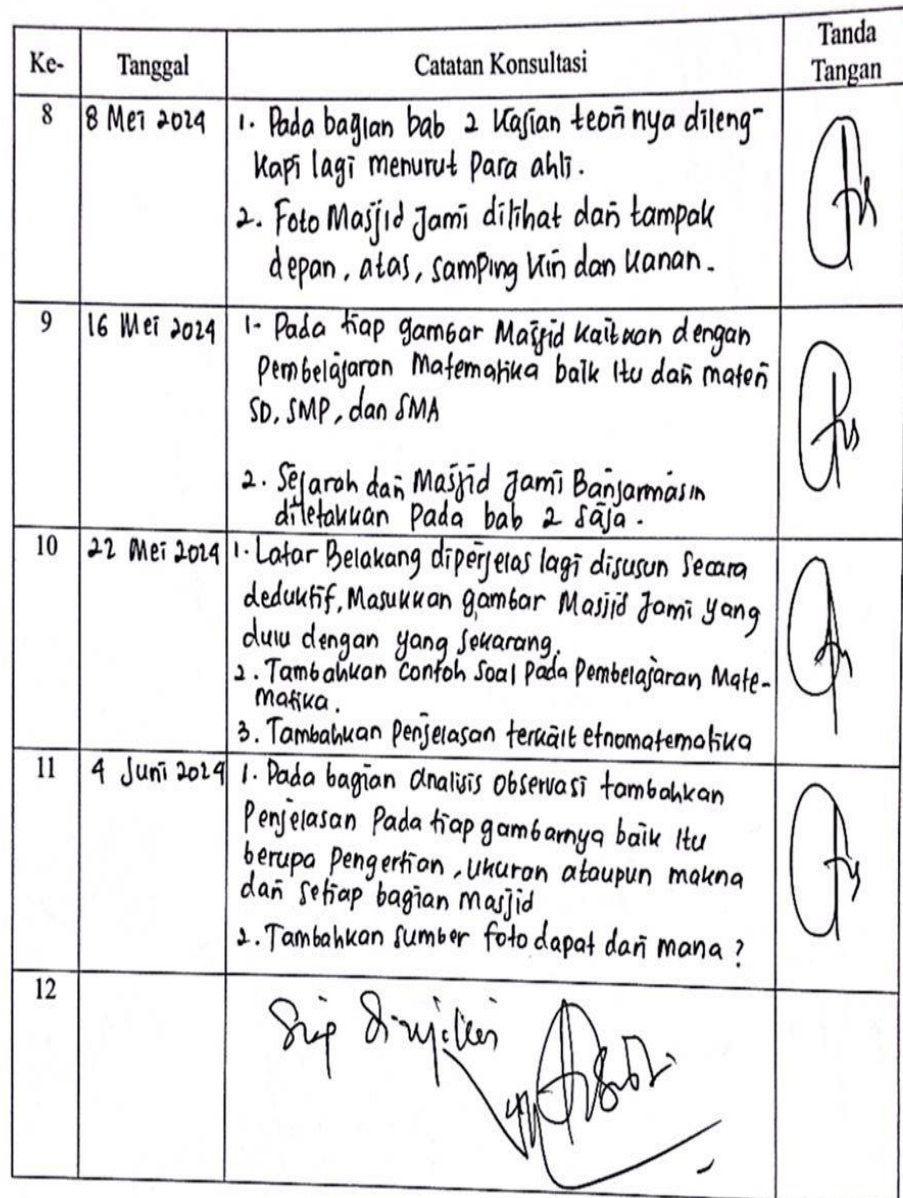 Ke- Tanggal Catatan Konsultasi Tanda
Tangan
8 8 Mei 2024 1. Pada bagian bab 2 Kajian teori nya dileng-
kapi lagi menurut Para ahli.
2. Foto Masjid Jami dilihat dari tampak
depan, atas, samping kiri dan kanan.
9 16 Mei 2024 1. Pada tiap gambar Masjid kaitkan dengan
Pembelajaran Matematika baik itu dari materi
SD, SMP, dan SMA
2. Sejarah dari Masjid Jami Banjarmasin
diletakkan pada bab 2 saja.
10 22 Mei 2024 1. Latar Belakang diperjelas lagi disusun secara
deduktif, Masukkan gambar Masjid Jami yang
dulu dengan yang sekarang.
2. Tambahkan contoh soal Pada Pembelajaran Mate-
matika.
3. Tambahkan Penjelasan terkait etnomatematika
11 4 Juni 2024 1. Pada bagian analisis observasi tambahkan
Penjelasan Pada tiap gambarnya baik itu
berupa Pengertian, ukuran ataupun makna
dari setiap bagian masjid
2. Tambahkan sumber foto dapat dari mana?
12